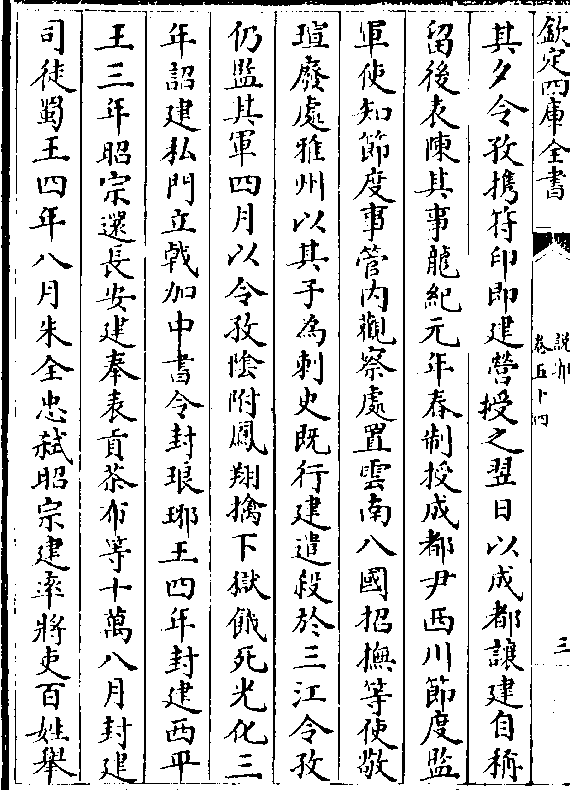 欽定四庫全書
說郛
卷五十四
三
其夕令孜携符印即建營授之翌日以成都讓建自稱
留後表陳其事龍紀元年春制授成都尹西川節度監
軍使知節度事管内觀察處置雲南八國招撫等使敬
瑄廢處雅州以其子為刺史既行建遣殺於三江令孜
仍監其軍四月以令孜陰附鳳翔擒下獄餓死光化三
年詔建私門立戟加中書令封琅琊王四年封建西平
王三年昭宗還長安建奉表貢茶布等十萬八月封建
司徒蜀王四年八月朱全忠弑昭宗建率將吏百姓舉